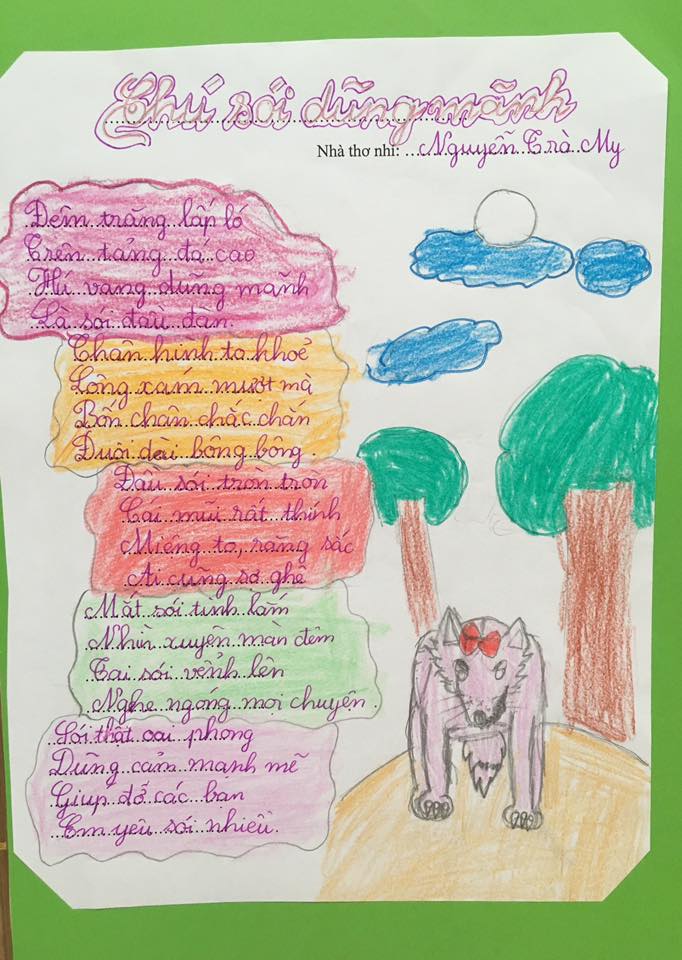 Chú sói dũng mãnh
Nhà thơ nhí: Nguyễn Trà My
Đêm trăng lấp ló
Trên tảng đá cao
Hú vang dũng mãnh
Là sói đầu đàn.
Thân hình to khoẻ
Lông xám mượt mà
Bốn chân chắc chắn
Đuôi dài bông bông.
Đầu sói tròn tròn
Cái mũi rất thính
Miệng to, răng sắc
Ai cũng sợ ghê
Mắt sói tinh lắm
Nhìn xuyên màn đêm
Tai sói vểnh lên
Nghe ngóng mọi chuyện.
Sói thật oai phong
Dũng cảm mạnh mẽ
Giúp đỡ các bạn
Em yêu sói nhiều.